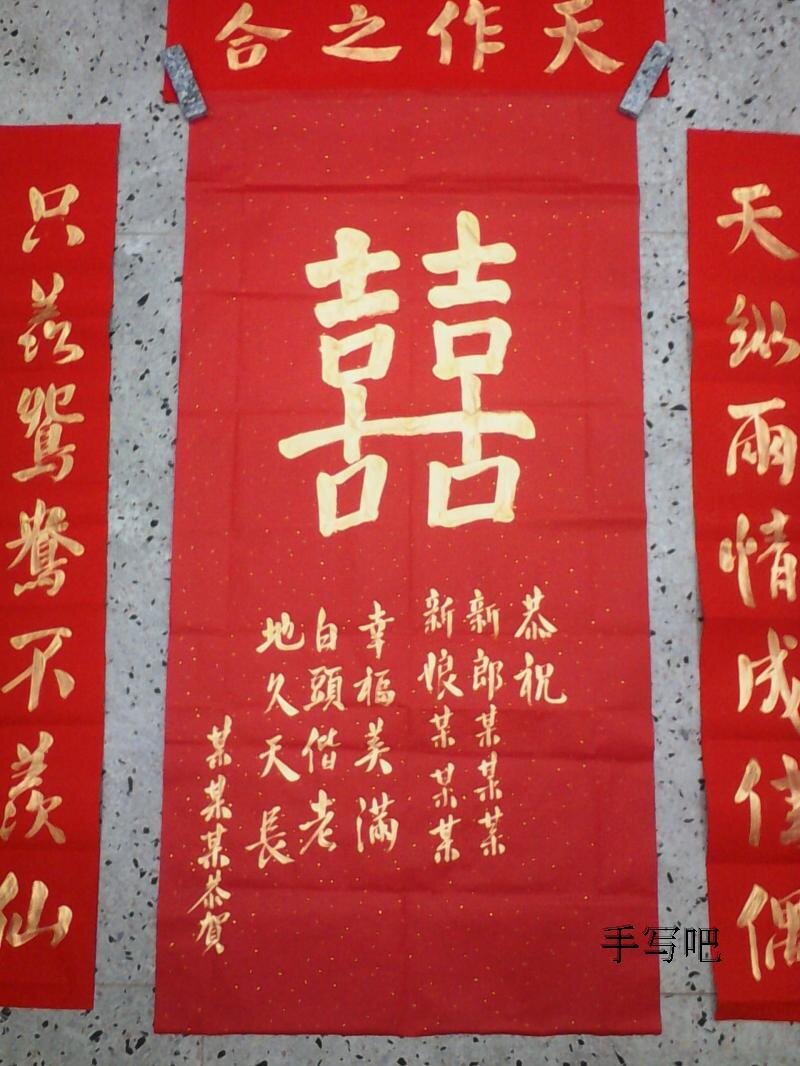 天作之合
天纵雨情成佳偶
囍
恭祝
新郎某某某
新娘某某某
幸福美滿
白頭偕老
地久天長
某某某恭賀
只羨鴛鴦不羨仙
手写吧